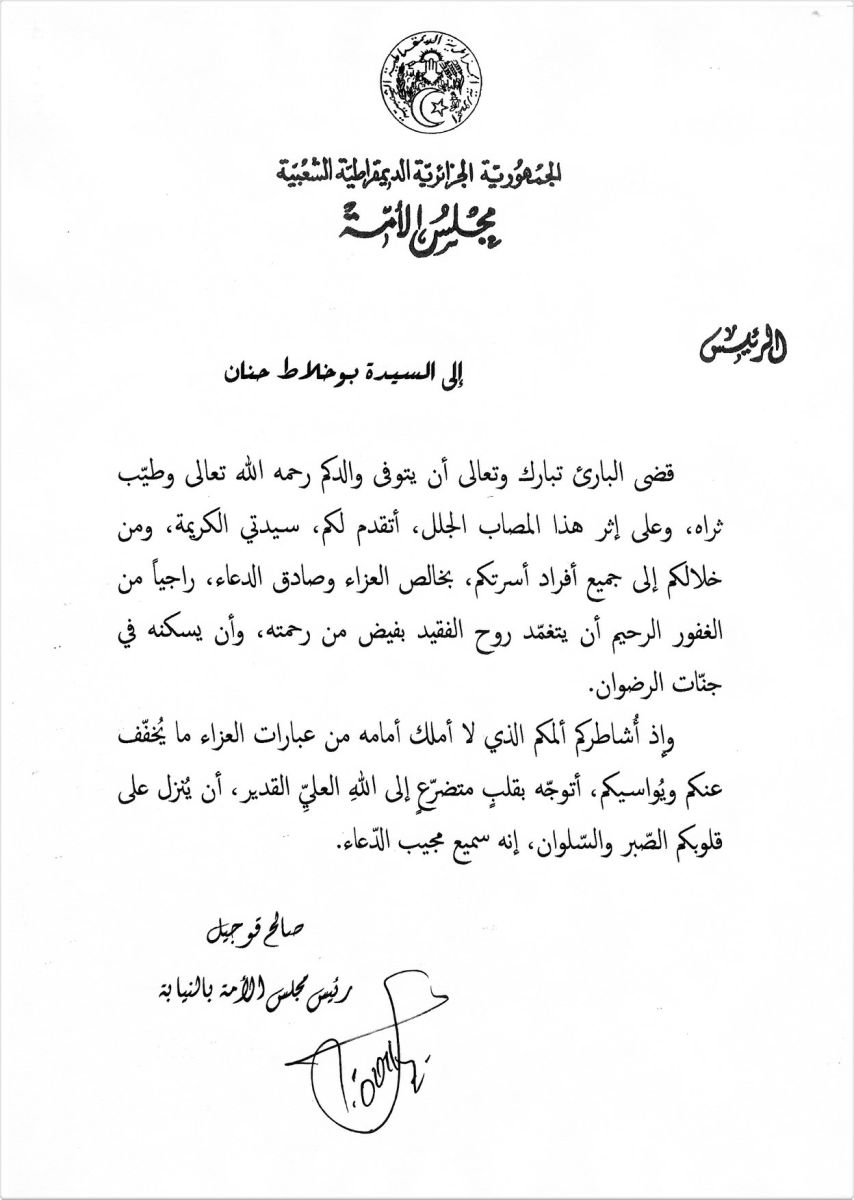 الجمهورية الجزائرية الديمقراطية الشعبية
الجمْهُوريّة الجزائريّة الديمقراطيّة الشّعْبيّة
مجْلسُ الأمّة
الرئيس
إلى السيدة بوخلاط حنان
قضى البارئ تبارك وتعالى أن يتوفى والدكم رحمه الله تعالى وطيّب
ثراه، وعلى إثر هذا المصاب الجلل، أتقدم لكم، سيدتي الكريمة، ومن
خلالكم إلى جميع أفراد أسرتكم، بخالص العزاء وصادق الدعاء، راجياً من
الغفور الرحيم أن يتغمّد روح الفقيد بفيض من رحمته، وأن يسكنه في
جنّات الرضوان.
وإذ أُشاطركم ألمكم الذي لا أملك أمامه من عبارات العزاء ما يُخفّف
عنكم ويُواسيكم، أتوجّه بقلبٍ متضرّعٍ إلى اللهِ العليِّ القدير، أن يُنزل على
قلوبكم الصّبر والسّلوان، إنه سميع مجيب الدّعاء.
صالح قوجيل
رئيس مجلس الأمة بالنيابة